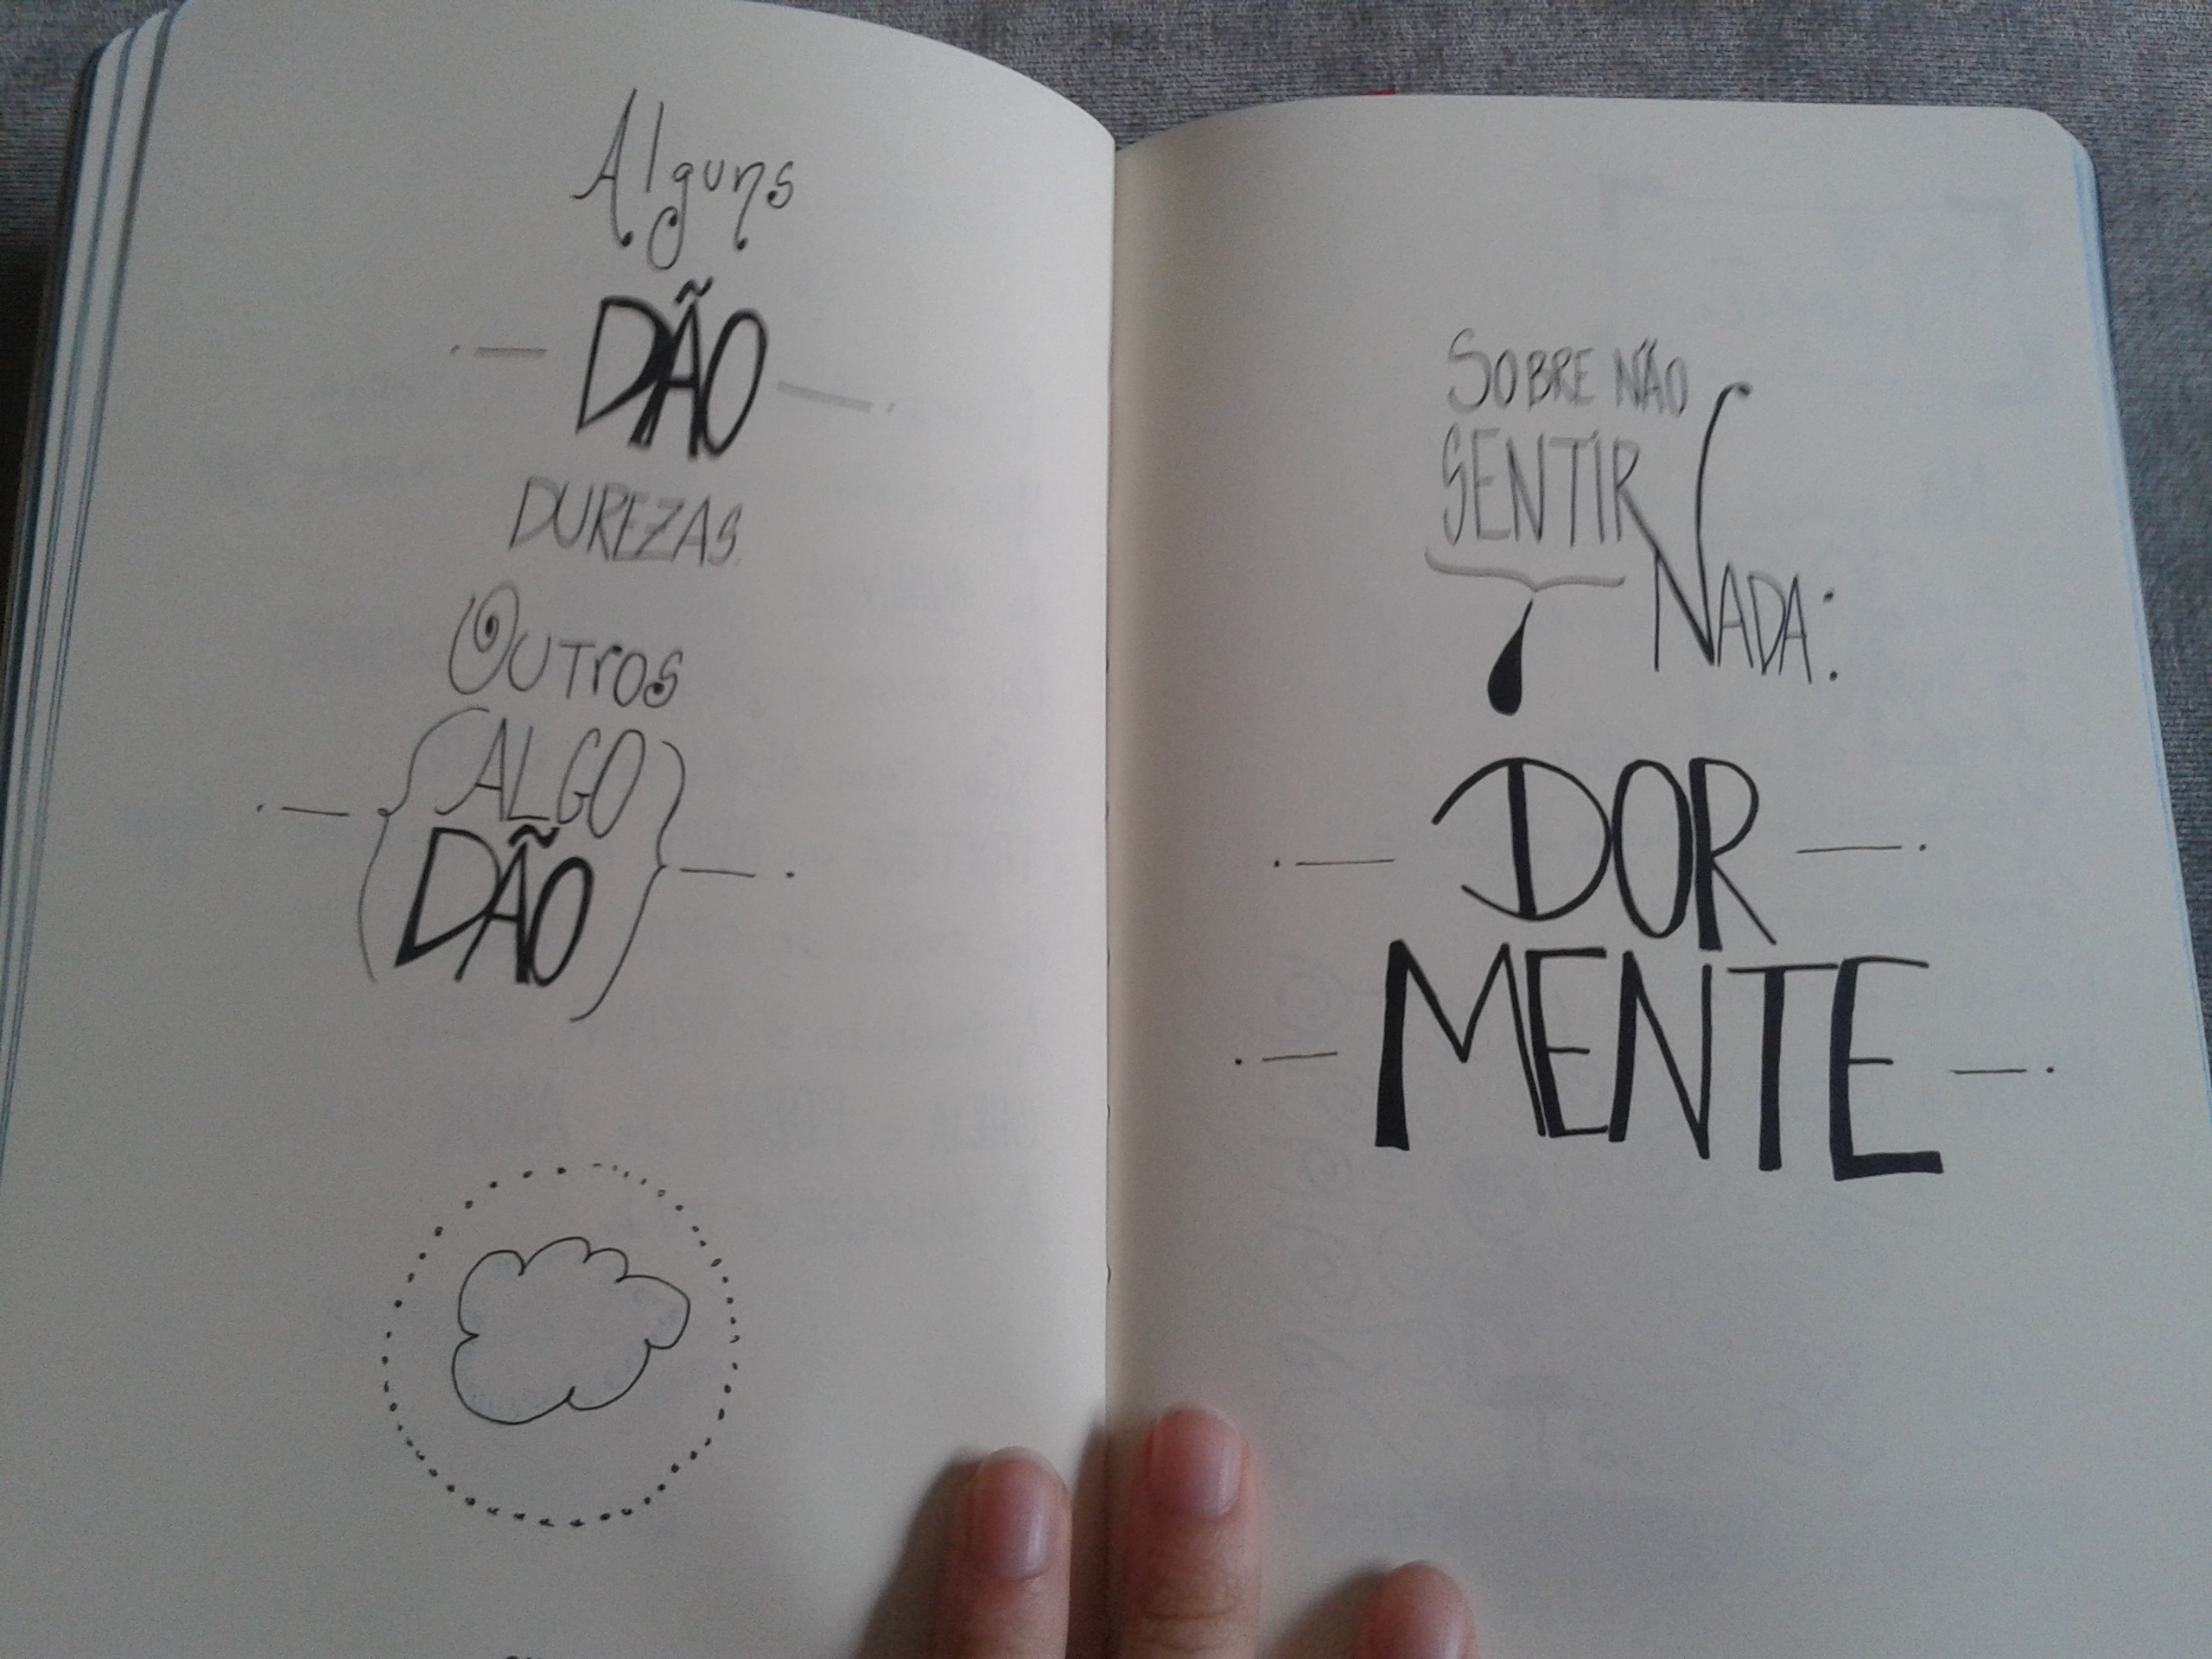 Alguns
DÃO
DUREZAS.
OUTrOS
ALGO
DÃO
SOBRE NÃO
SENTIR
NADA:
DOR
MENTE